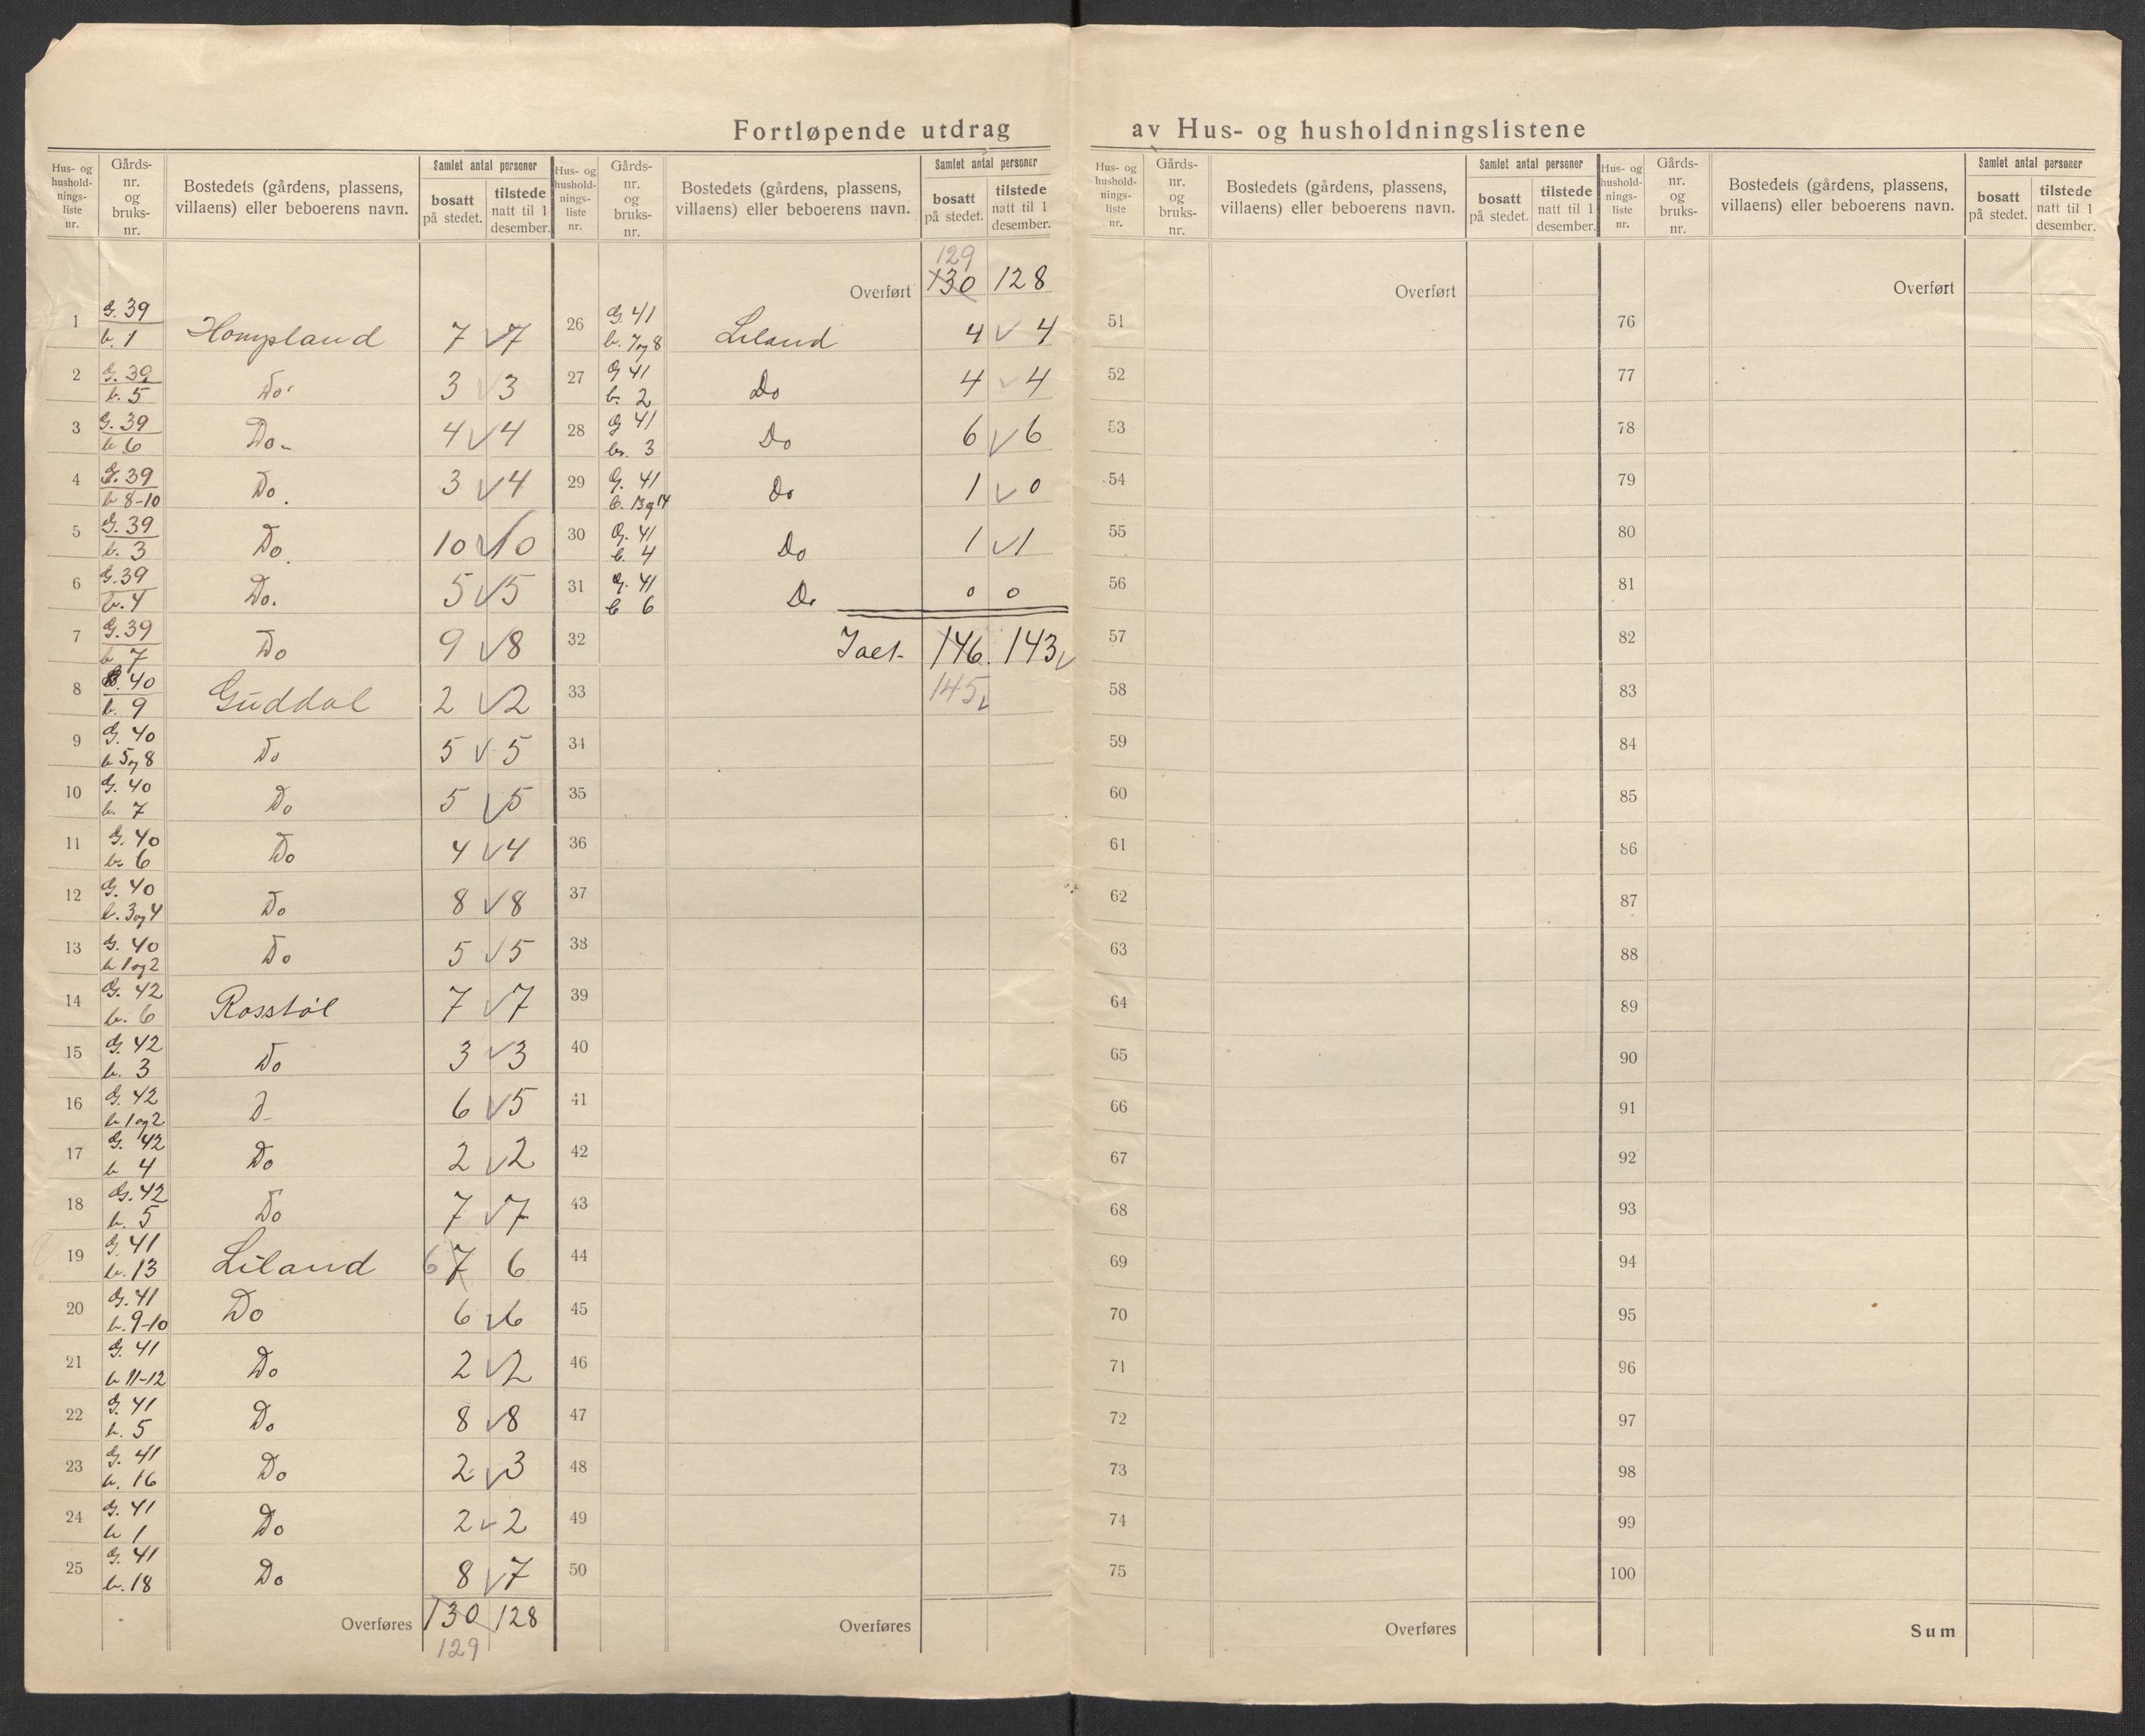 Fortløpende utdrag av Hus- og husholdningslistene
Hus- og hushold-nings-liste nr. Gårds-nr. og bruks-nr. Bostedets (gårdens, plassens, villaens) eller beboerens navn. Samlet antal personer bosatt på stedet. tilstede natt til 1 desember.
1 G. 39 b. 1 Hompland 7 7
2 G. 39 b. 5 Do 3 3
3 G. 39 b 6 Do 4 4
4 G. 39 b 8-10 Do 3 4
5 G. 39 b. 3 Do 10 10
6 G. 39 b. 4 Do. 5 5
7 G. 39 b 7 Do 9 8
8 G. 40 b. 9 Guddal 2 2
9 G. 40 b 5 og 8 Do 5 5
10 G. 40 b. 7 Do 5 5
11 G. 40 b. 6 Do 4 4
12 G. 40 b. 3 og 4 Do 8 8
13 G. 40 b 1 og 2 Do 5 5
14 G. 42 b. 6 Rosstøl 7 7
15 G. 42 b. 3 Do 3 3
16 G. 42 b 1 og 2 D 6 5
17 G. 42 b 4 Do 2 2
18 G. 42 b. 5 Do 7 7
19 G. 41 b. 13 Liland 6 7 6
20 G. 41 b. 9-10 Do 6 6
21 G. 41 b 11-12 Do 2 2
22 G. 41 b. 5 Do 8 8
23 G. 41 b. 16 Do 2 3
24 G. 41 b 1 Do 2 2
25 G. 41 b. 18 Do 8 7
Overføres 130 128
129
Hus- og hushold-nings-liste nr. Gårds-nr. og bruks-nr. Bostedets (gårdens, plassens, villaens) eller beboerens navn. Samlet antal personer bosatt på stedet. tilstede natt til 1 desember.
129
Overført 130 128
26 G. 41 b. 7 og 8 Liland 4 4
27 G 41 b. 2 Do 4 4
28 G 41 br. 3 Do 6 6
29 G. 41 Do 1 0
30 G. 41 b. 4 Do 1 1
31 G. 41 b 6 Do 0 0
32 Ialt 146. 143
33 145
34
35
36
37
38
39
40
41
42
43
44
45
46
47
48
49
50
Overføres
Hus- og hushold-nings-liste nr. Gårds-nr. og bruks-nr. Bostedets (gårdens, plassens, villaens) eller beboerens navn. Samlet antal personer bosatt på stedet. tilstede natt til 1 desember.
Overført
51
52
53
54
55
56
57
58
59
60
61
62
63
64
65
66
67
68
69
70
71
72
73
74
75
Overføres
Hus- og hushold-nings-liste nr. Gårds-nr. og bruks-nr. Bostedets (gårdens, plassens, villaens) eller beboerens navn. Samlet antal personer bosatt på stedet. tilstede natt til 1 desember.
Overført
76
77
78
79
80
81
82
83
84
85
86
87
88
89
90
91
92
93
94
95
96
97
98
99
100
Sum